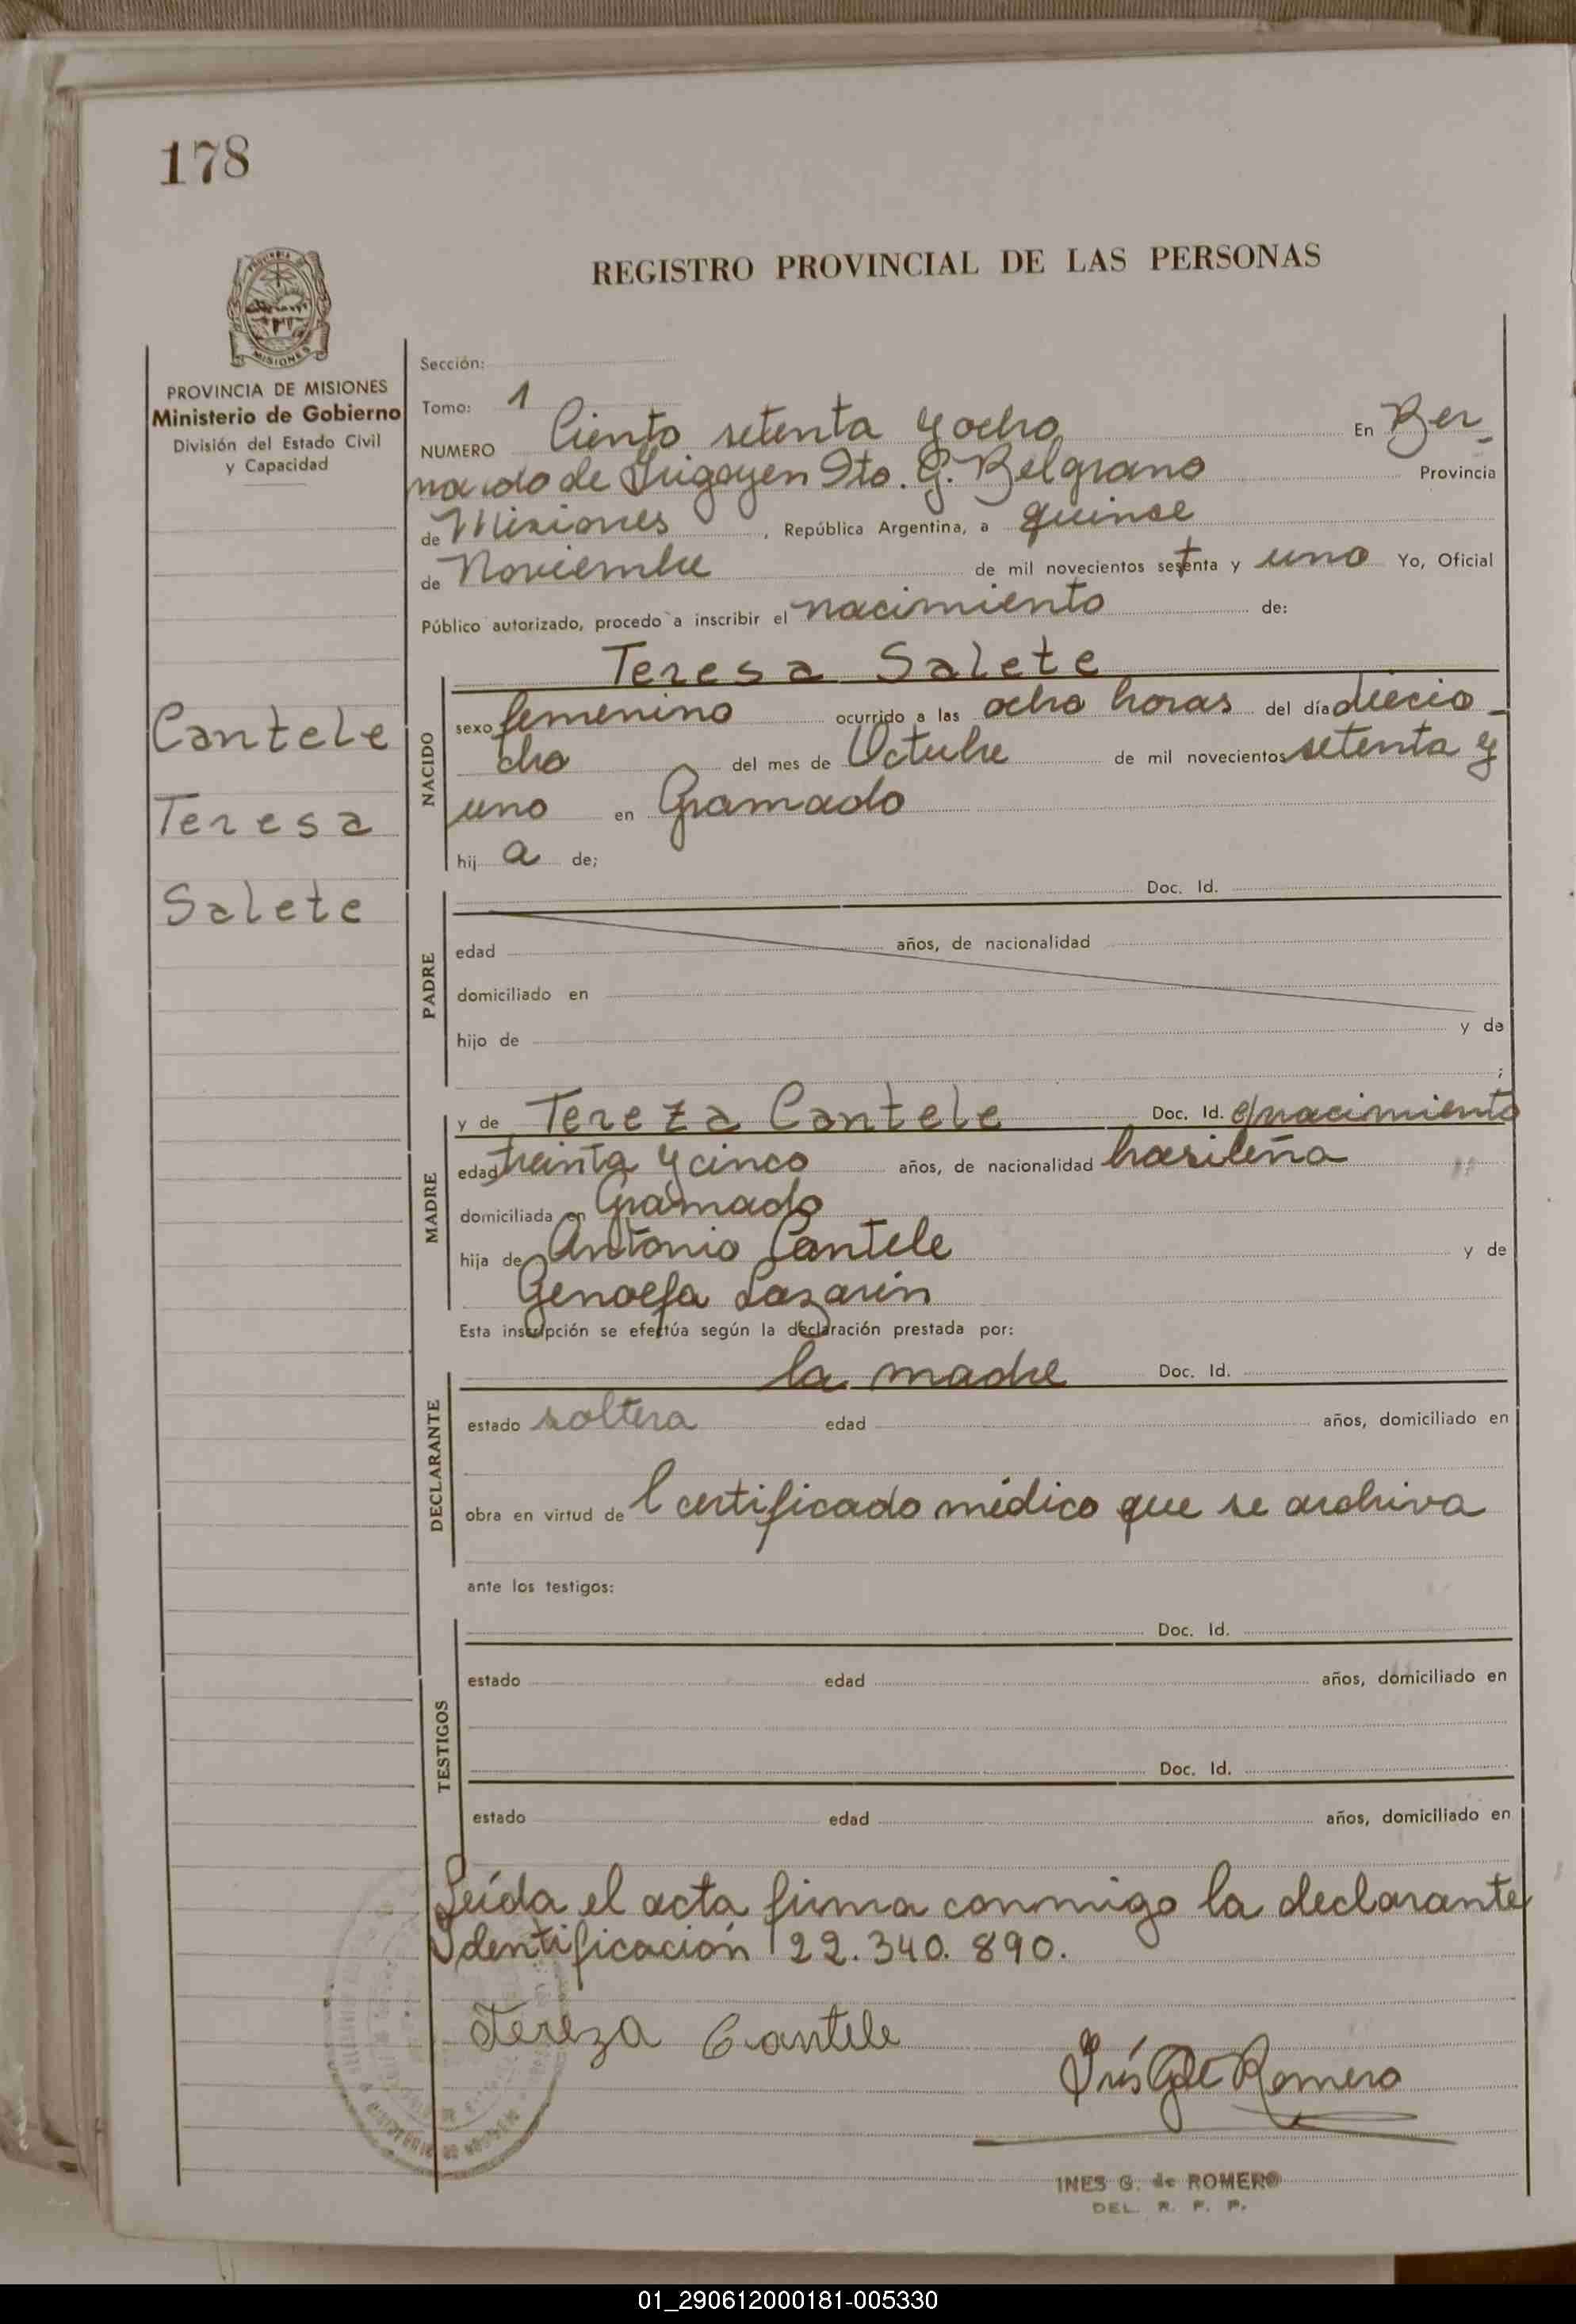 178
REGISTRO PROVINCIAL DE LAS PERSONAS
PROVINCIA DE MISIONES
Ministerio de Gobierno
División del Estado Civil
y Capacidad
Cantele
Teresa
Salete
Sección:
Tomo: 1
NUMERO Ciento setenta y ocho En Ber-
nardo de Irigoyen Dto. G. Belgrano Provincia
de Misiones, República Argentina, a quinse
de Noviembre de mil novecientos setenta y uno Yo, Oficial
Público autorizado, procedo a inscribir el nacimiento de:
NACIDO
Teresa Salete
sexo femenino ocurrido a las ocho horas del día diecio-
cho del mes de Octubre de mil novecientos setenta y
uno en Gramado
hij a de;
PADRE
Doc. Id.
edad años, de nacionalidad
domiciliado en
hijo de y de
;
MADRE
y de Tereza Cantele Doc. Id. c/nacimiento
edad treinta y cinco años, de nacionalidad brasileña
domiciliada en Gramado
hija de Antonio Cantele y de
Genoefa Lazarin
Esta inscripción se efectúa según la declaración prestada por:
DECLARANTE
la madre Doc. Id.
estado soltera edad años, domiciliado en
obra en virtud de l certificado médico que se archiva
ante los testigos:
TESTIGOS
Doc. Id.
estado edad años, domiciliado en
Doc. Id.
estado edad años, domiciliado en
Leída el acta firma conmigo la declarante
Identificación 22.340.890.
Tereza Cantele
Inés G de Romero
INES G. de ROMERO
DEL. R. P. P.
01_290612000181-005330